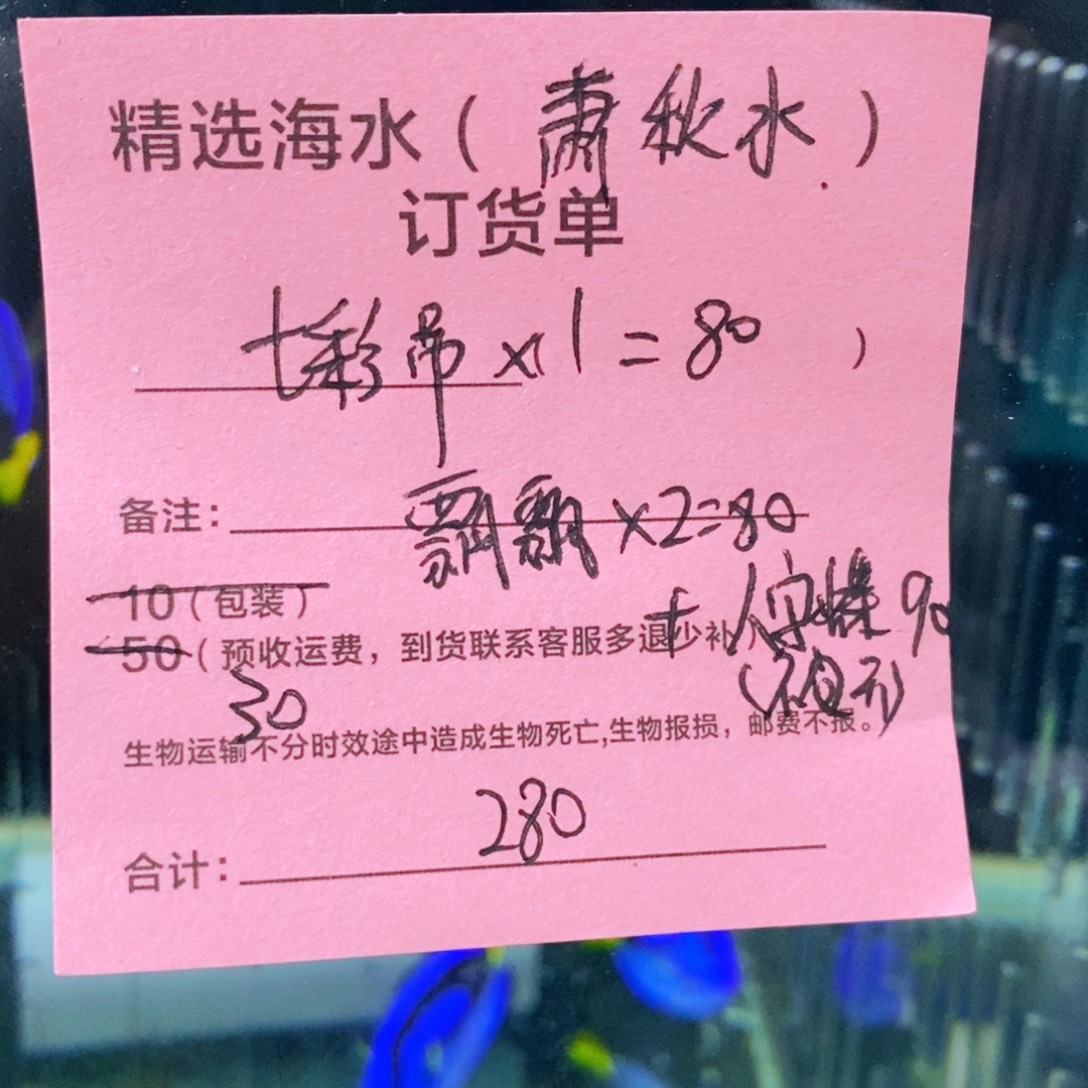 精选海水（萧秋水）
订货单
七彩吊 x 1 = 80 ）
备注： x2=80
10（包装）
50（预收运费，到货联系客服多退少补） + 人字蝶 90
30
生物运输不分时效途中造成生物死亡,生物报损，邮费不报。）
280
合计：